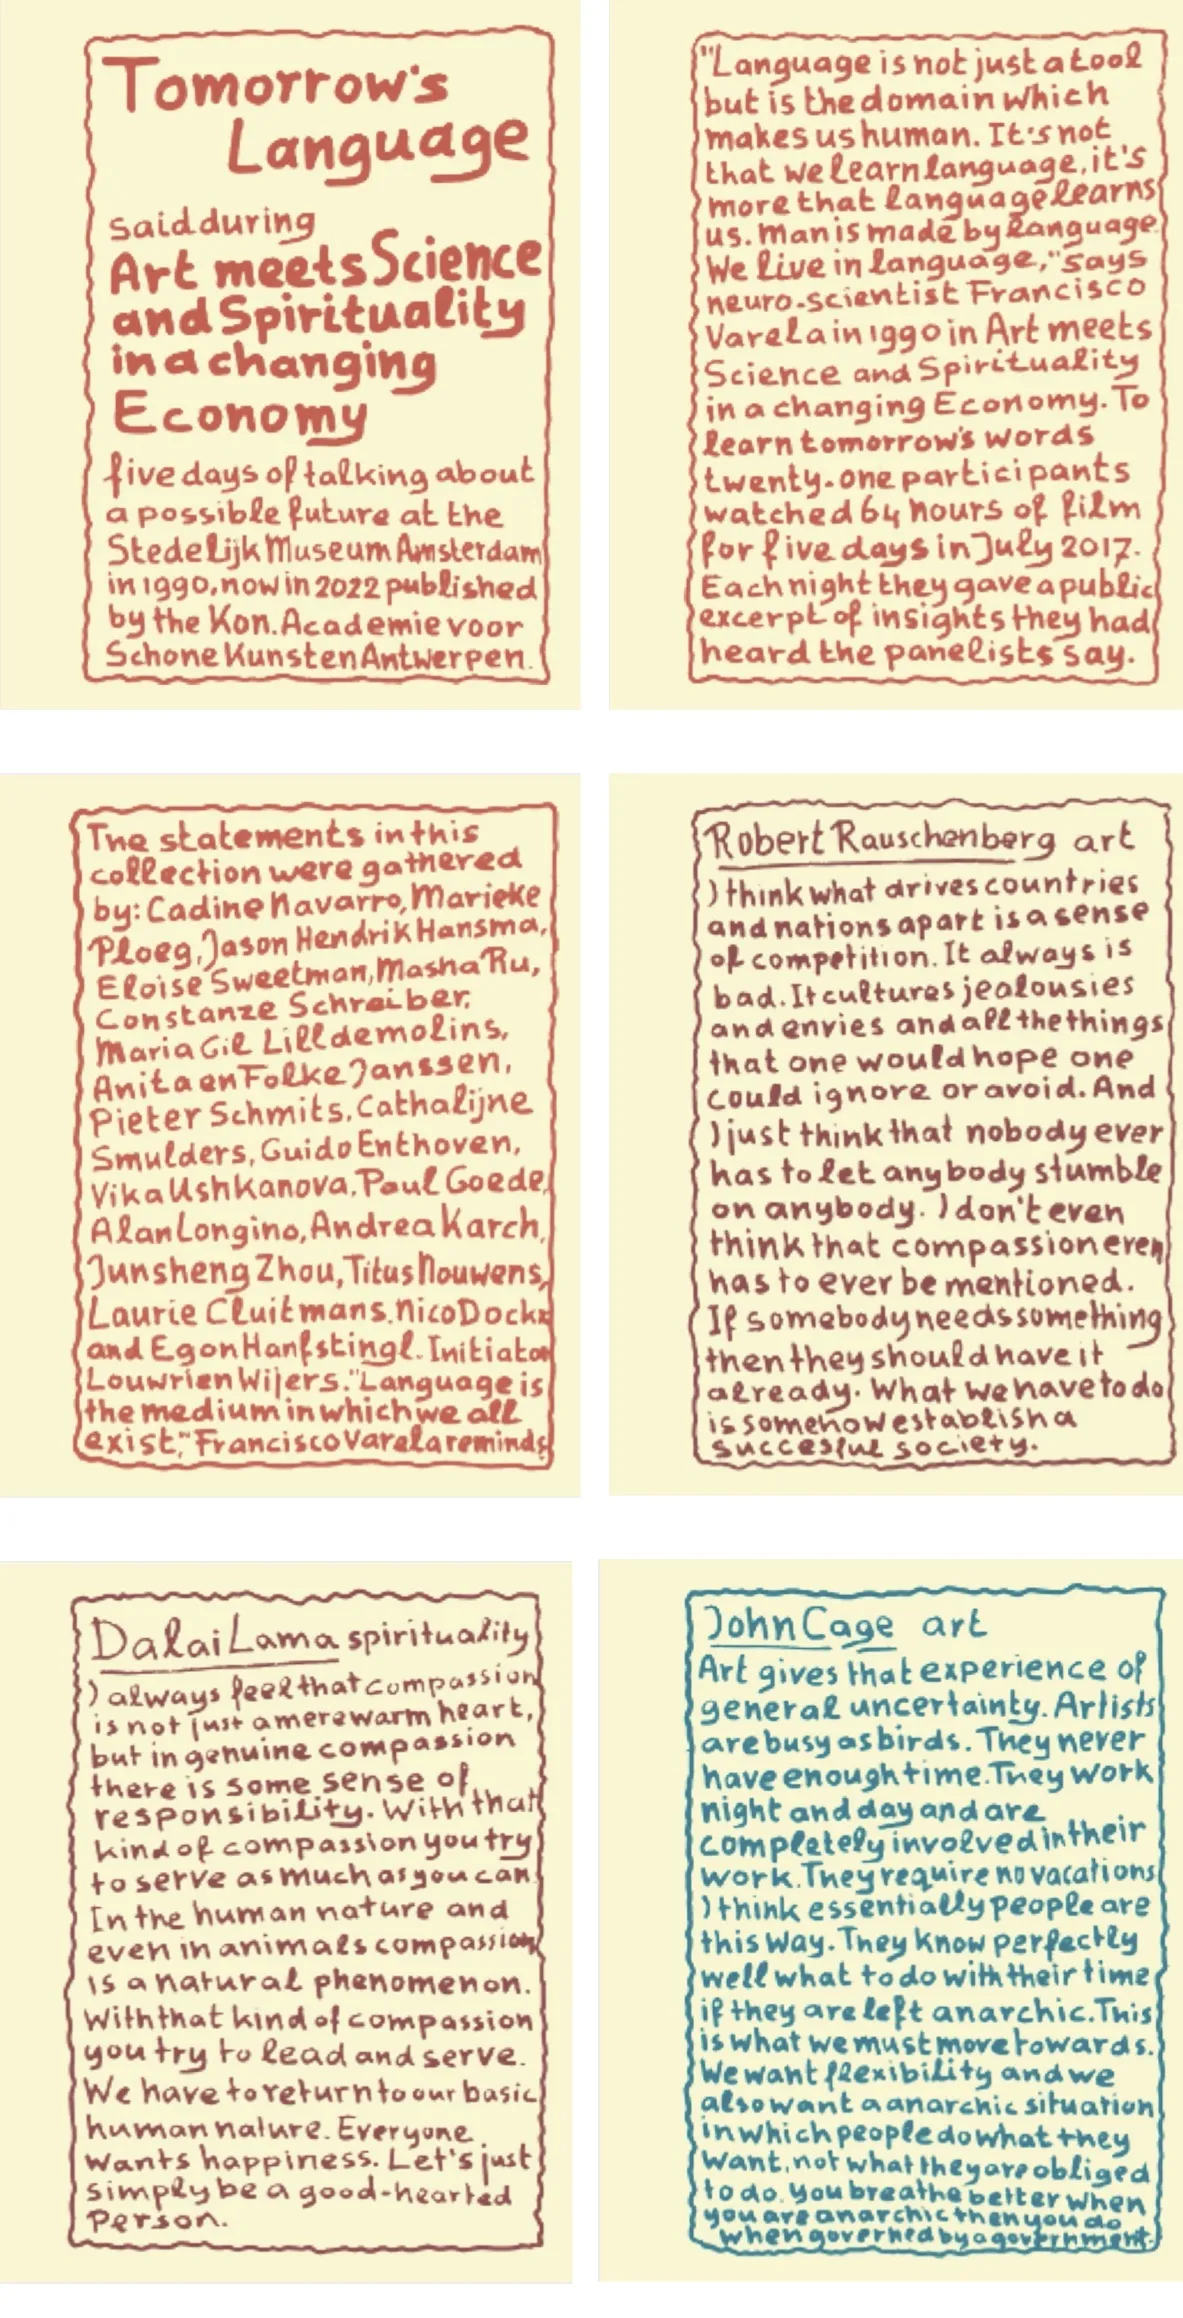 Tomorrow's
Language
said during
Art meets Science
and Spirituality
in a changing
Economy
five days of talking about
a possible future at the
Stedelijk Museum Amsterdam
in 1990, now in 2022 published
by the Kon. Academie voor
Schone Kunsten Antwerpen.
"Language is not just a tool
but is the domain which
makes us human. It's not
that we learn language, it's
more that language learns
us. Man is made by language.
We live in language," says
neuro-scientist Francisco
Varela in 1990 in Art meets
Science and Spirituality
in a changing Economy. To
learn tomorrow's words
twenty-one participants
watched 64 hours of film
for five days in July 2017.
Each night they gave a public
excerpt of insights they had
heard the panelists say.
The statements in this
collection were gathered
by: Cadine Navarro, Marieke
Ploeg, Jason Hendrik Hansma,
Eloise Sweetman, Masha Ru,
Constanze Schreiber,
Maria Gil Lilldemolins,
Anita en Folke Janssen,
Pieter Schmits, Cathalijne
Smulders, Guido Enthoven,
Vika Ushkanova, Paul Goede,
Alan Longino, Andrea Karch,
Junsheng Zhou, Titus Nouwens,
Laurie Cluitmans, Nico Dockx
and Egon Hanfstingl. Initiator
Louwrien Wijers. "Language is
the medium in which we all
exist," Francisco Varela reminds.
Robert Rauschenberg art
I think what drives countries
and nations apart is a sense
of competition. It always is
bad. It cultures jealousies
and envies and all the things
that one would hope one
could ignore or avoid. And
I just think that nobody ever
has to let anybody stumble
on anybody. I don't even
think that compassion even
has to ever be mentioned.
If somebody needs something
then they should have it
already. What we have to do
is somehow establish a
succesful society.
Dalai Lama spirituality
I always feel that compassion
is not just a mere warm heart,
but in genuine compassion
there is some sense of
responsibility. With that
kind of compassion you try
to serve as much as you can.
In the human nature and
even in animals compassion
is a natural phenomenon.
With that kind of compassion
you try to lead and serve.
We have to return to our basic
human nature. Everyone
wants happiness. Let's just
simply be a good-hearted
person.
John Cage art
Art gives that experience of
general uncertainty. Artists
are busy as birds. They never
have enough time. They work
night and day and are
completely involved in their
work. They require no vacations
I think essentially people are
this way. They know perfectly
well what to do with their time
if they are left anarchic. This
is what we must move towards.
We want flexibility and we
also want a anarchic situation
in which people do what they
want, not what they are obliged
to do. You breathe better when
you are anarchic then you do
when governed by a government.